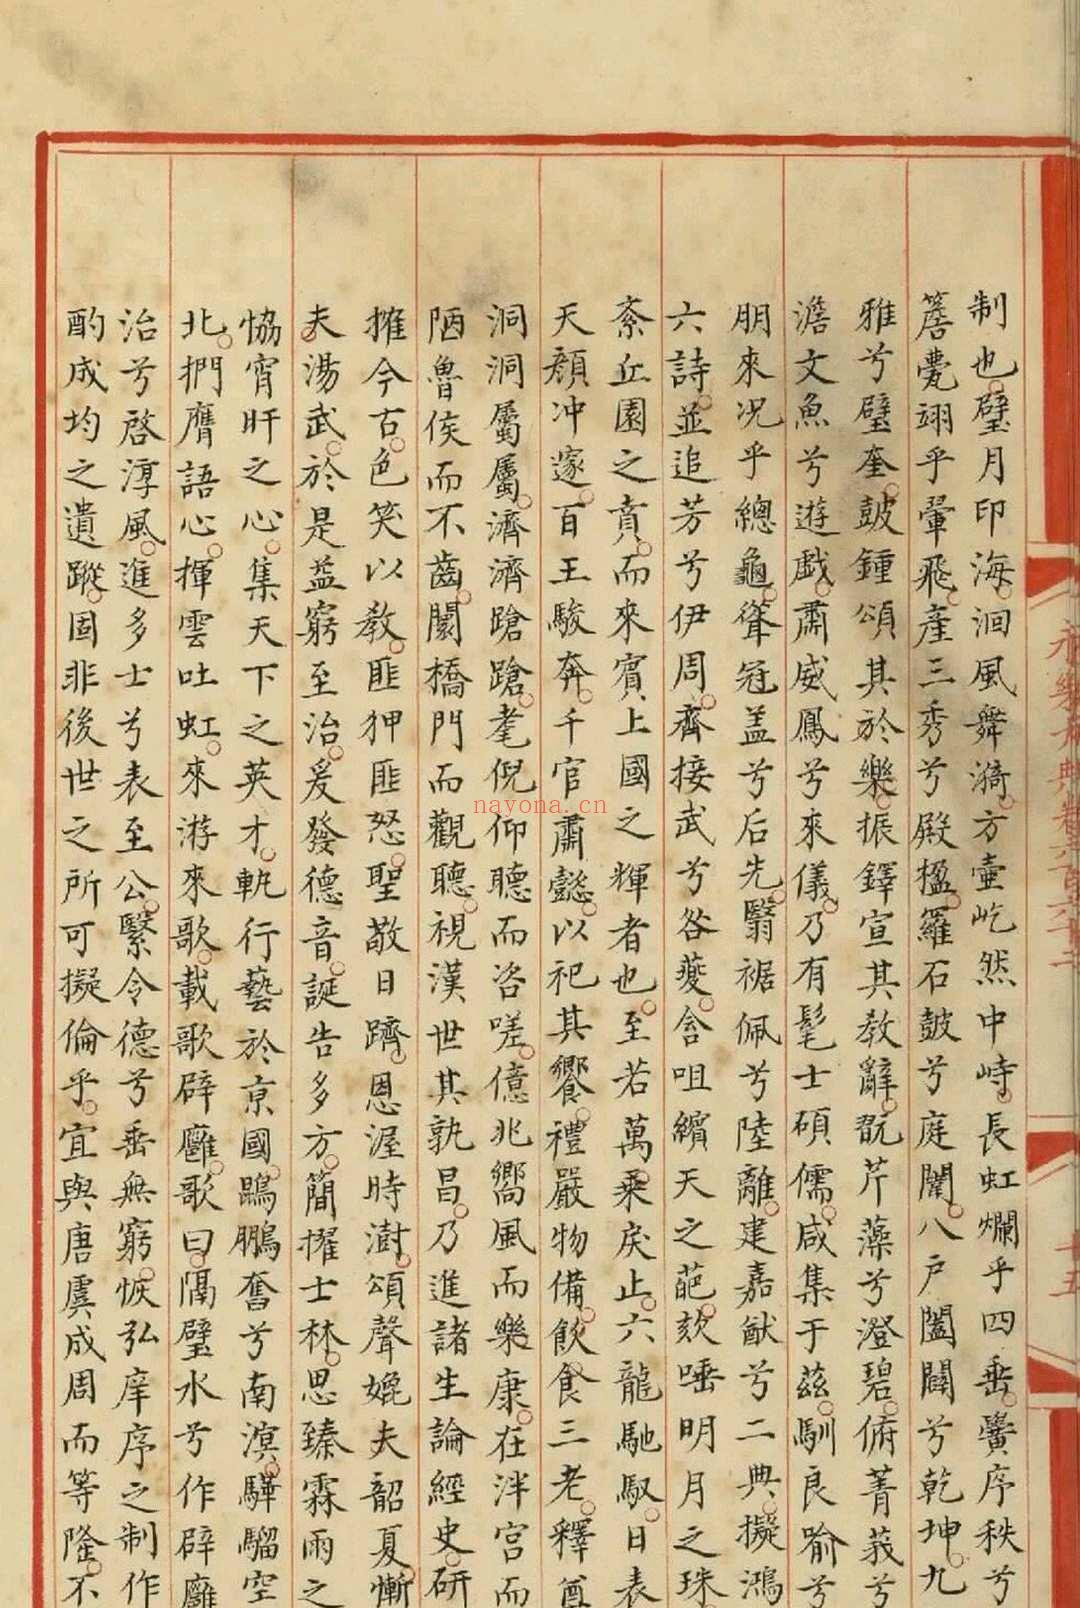 制也璧月印海洄風舞漪方壷屹然中峙長虹爛乎四垂黌序秩兮
簷甍翊乎翬飛產三秀兮殿楹羅石皷兮庭闈八戸闔闢兮乾坤九
雅兮璧奎皷鍾頌其於樂振鐸宣其教辭翫芹藻兮澄碧俯菁莪兮
澹文魚兮遊戲肅威鳳兮來儀乃有髦士碩儒咸集于茲馴良喻兮
朋來况乎總龜聳冠盖兮后先翳裾佩兮陸離建嘉猷兮二典擬鴻
六詩並追芳兮伊周齊接武兮咎夔含咀繽天之葩欬唾明月之珠
紊丘園之賁而來賓上國之輝者也至若萬乘戾止六龍馳馭日表
天顔冲邃百王駿奔千官肅懿以祀其饗禮嚴物備飲食三老釋酋
洞洞屬屬濟濟蹌蹌耄倪仰聽而咨嗟億兆嚮風而樂康在泮宫而
陋魯侯而不齒闤橋門而觀聽視漢世其孰昌乃進諸生論經史研
摧今古色笑以教匪狎匪怒聖敬日躋恩渥時澍頌聲媲夫韶夏慚
夫湯武於是益窮至治爰發德音誕告多方簡擢士林思臻霖雨之
恊宵旰之心集天下之英才軏行藝於京國鶤鵬奮兮南溟驊騮空
北捫膺語心揮雲吐虹來游來歌載歌辟廱歌曰隔璧水兮作辟廱
治兮啓淳風進多士兮表至公繄令德兮垂無窮恢弘庠序之制作
酌成均之遺蹤固非後世之所可擬倫乎宜與唐虞成周而等隆不
永樂大典卷
十五
nayona.cn